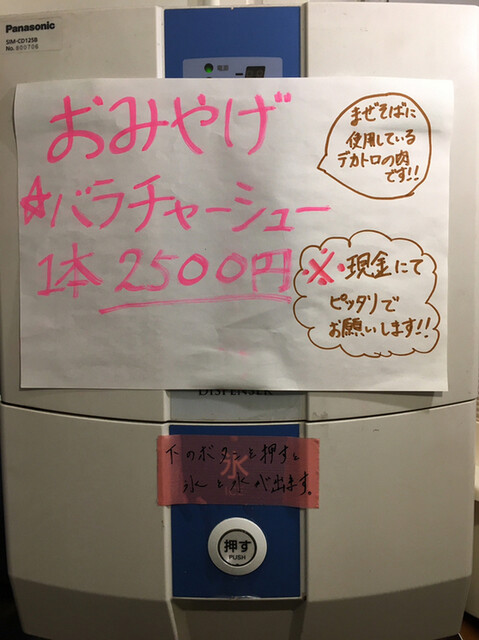 Panasonic
SIM-CD125B
No. 800706
電源
おみやげ
☆バラチャーシュー
1本 2500円
まぜそばに
使用している
デカトロの肉
です!!
※現金にて
ピッタリで
お願いします!!
DISPENSER
下のボタンを押すと
氷と水が出ます。
氷
押す
PUSH